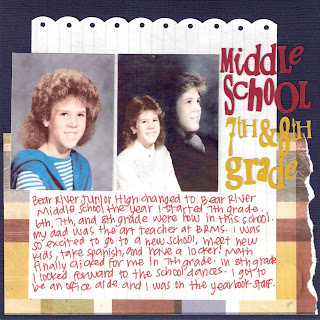 Middle
School
7th & 8th
grade
Bear River Junior High changed to Bear River
Middle School the year I started 7th grade.
6th, 7th, and 8th grade were now in this school.
My dad was the art teacher at BRMS. I was
so excited to go to a new school, meet new
kids, take spanish, and have a locker! Math
finally clicked for me in 7th grade. In 8th grade
I looked forward to the school dances. I got to
be an office aide and I was on the yearbook staff.